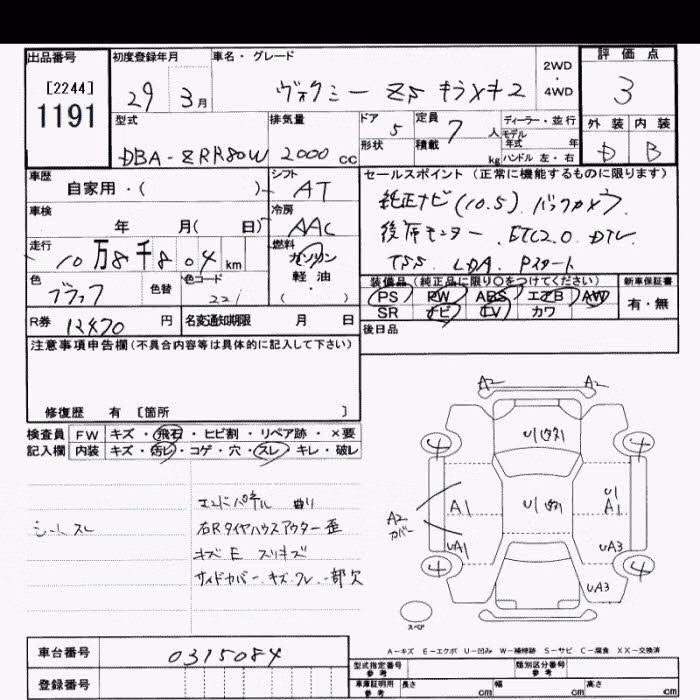 出品番号 初度登録年月 車名・グレード 2WD・4WD 評価点
[2244] 29 3月 ヴォクシー ZS キラメキ2 3
1191
型式 排気量 ドア 5 定員 7 人 ディーラー・並行 外装 内装
DBA-ZRR80W 2000 cc 形状 積載 kg モデル年式 年 D B
ハンドル 左・右
車歴 シフト セールスポイント(正常に機能するものに限ります)
自家用・( ) AT 純正ナビ(10.5) バックカメラ
車検 冷房 後席モニター ETC2.0 DTV
年 月( 日) AAC TSS LDA Pスタート
走行 燃料
10万8千804km ガソリン
軽油・( )
色 色替 色コード 装備品(純正品に限り○をつけてください) 新車保証書
ブラック 221 PS PW ABS エアB AW 有・無
SR ナビ TV カワ
R券 12470 円 名変通知期限 月 日 後日品
注意事項申告欄(不具合内容等は具体的に記入して下さい)
修復歴 有 [箇所 ]
検査員 FW キズ・飛石・ヒビ割・リペア跡・×要
記入欄 内装 キズ・汚レ・コゲ・穴・スレ・キレ・破レ
エンドパネル 曲り
シートスレ 右Rタイヤハウスアウター歪
キズ E スリキズ
サイドカバー キズ.ワレ.一部欠
A2 A2
4 4
U1
A1 U1 U1
A1
A2
カバー
UA1 UA3
4 4
UA3
スペア
A-キズ E-エクボ U-凹み W-補修跡 S-サビ C-腐食 XX-交換済
車台番号 0315084 型式指定番号 参考 類別区分番号 参考
登録番号 車庫証明用 参考 長さ cm 幅 cm 高さ cm